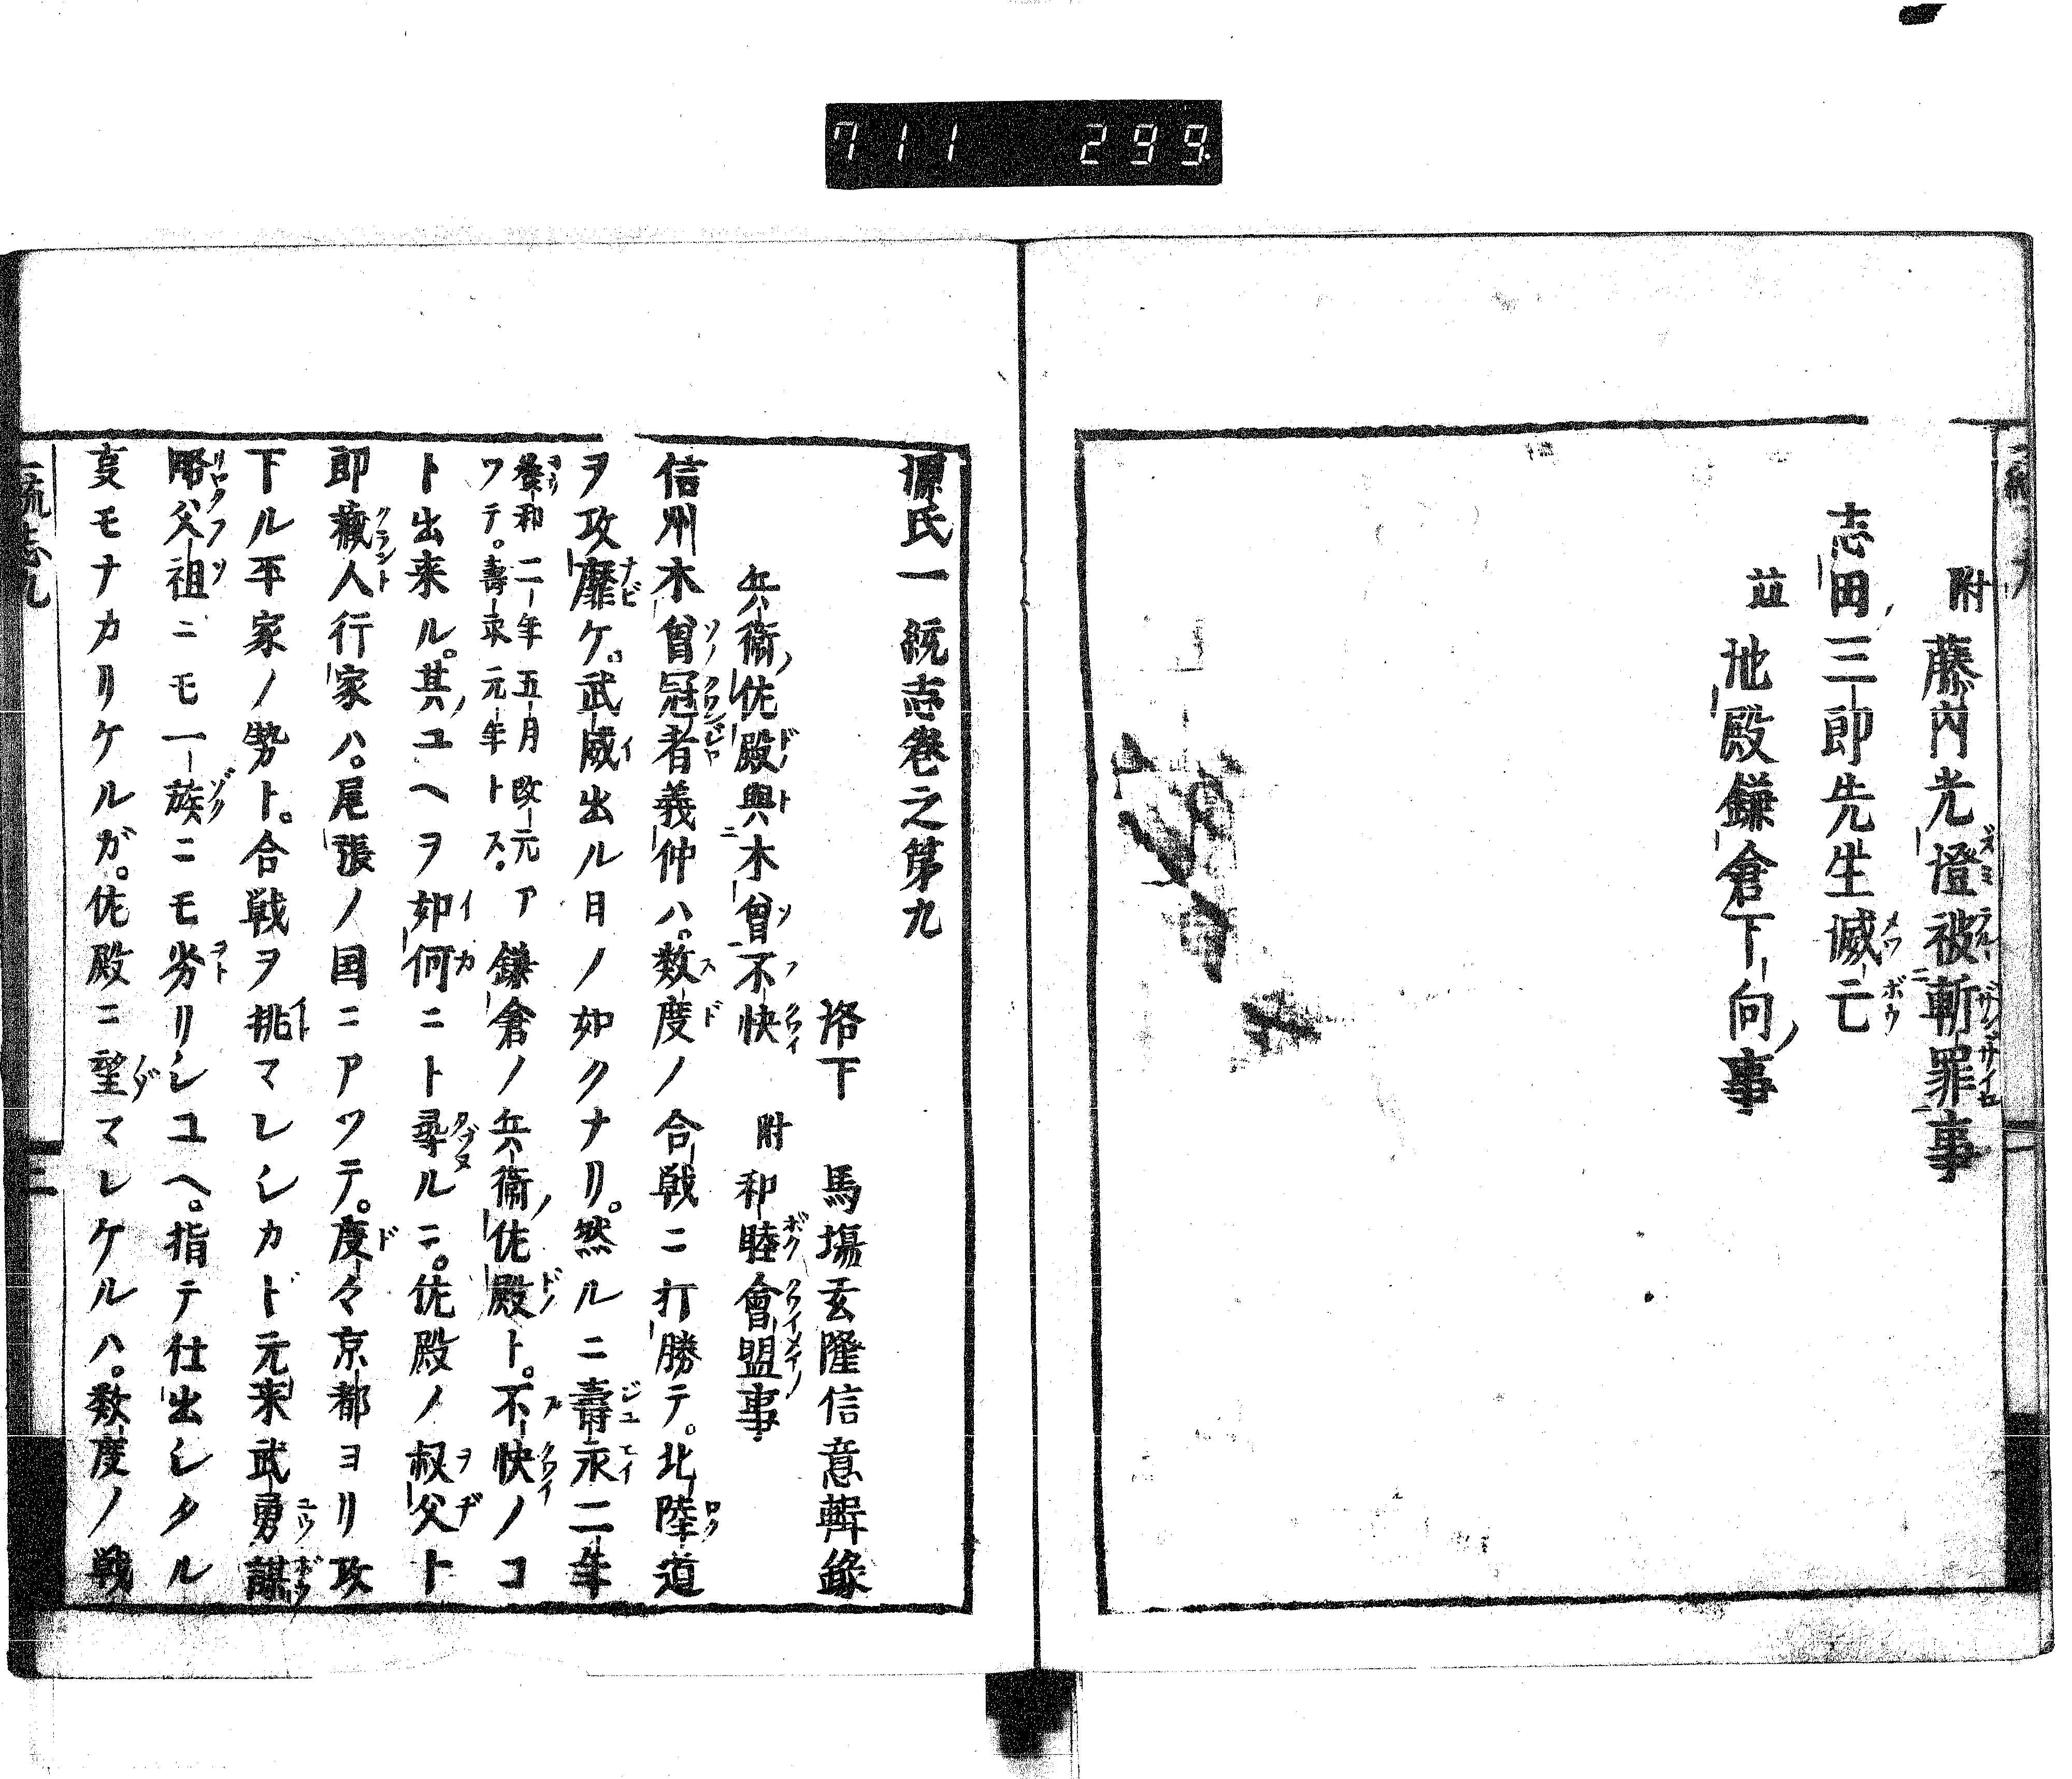 711 299
附 藤内光澄被斬罪事
志田三郎先生滅亡
並 池殿鎌倉下向事
源氏一統志巻之第九
洛下 馬場玄隆信意輯録
兵衛佐殿與木曽不快 附 和睦會盟事
信州木曽冠者義仲ハ。数度ノ合戦ニ打勝テ。北陸道
ヲ攻靡ケ。武威出ル日ノ如クナリ。然ルニ壽永二年
養和二年五月改元アツテ。壽永元年トス。鎌倉ノ兵衛佐殿ト。不快ノコ
ト出来ル。其ユヘヲ如何ニト尋ルニ。佐殿ノ叔父ト
郎蔵人行家ハ。尾張ノ国ニアツテ。度々京都ヨリ攻
下ル平家ノ勢ト。合戦ヲ挑マレシカド元来武勇謀
略父祖ニモ一族ニモ劣リシユヘ。指テ仕出シタル
叓モナカリケルガ。佐殿ニ望マレケルハ。数度ノ戦